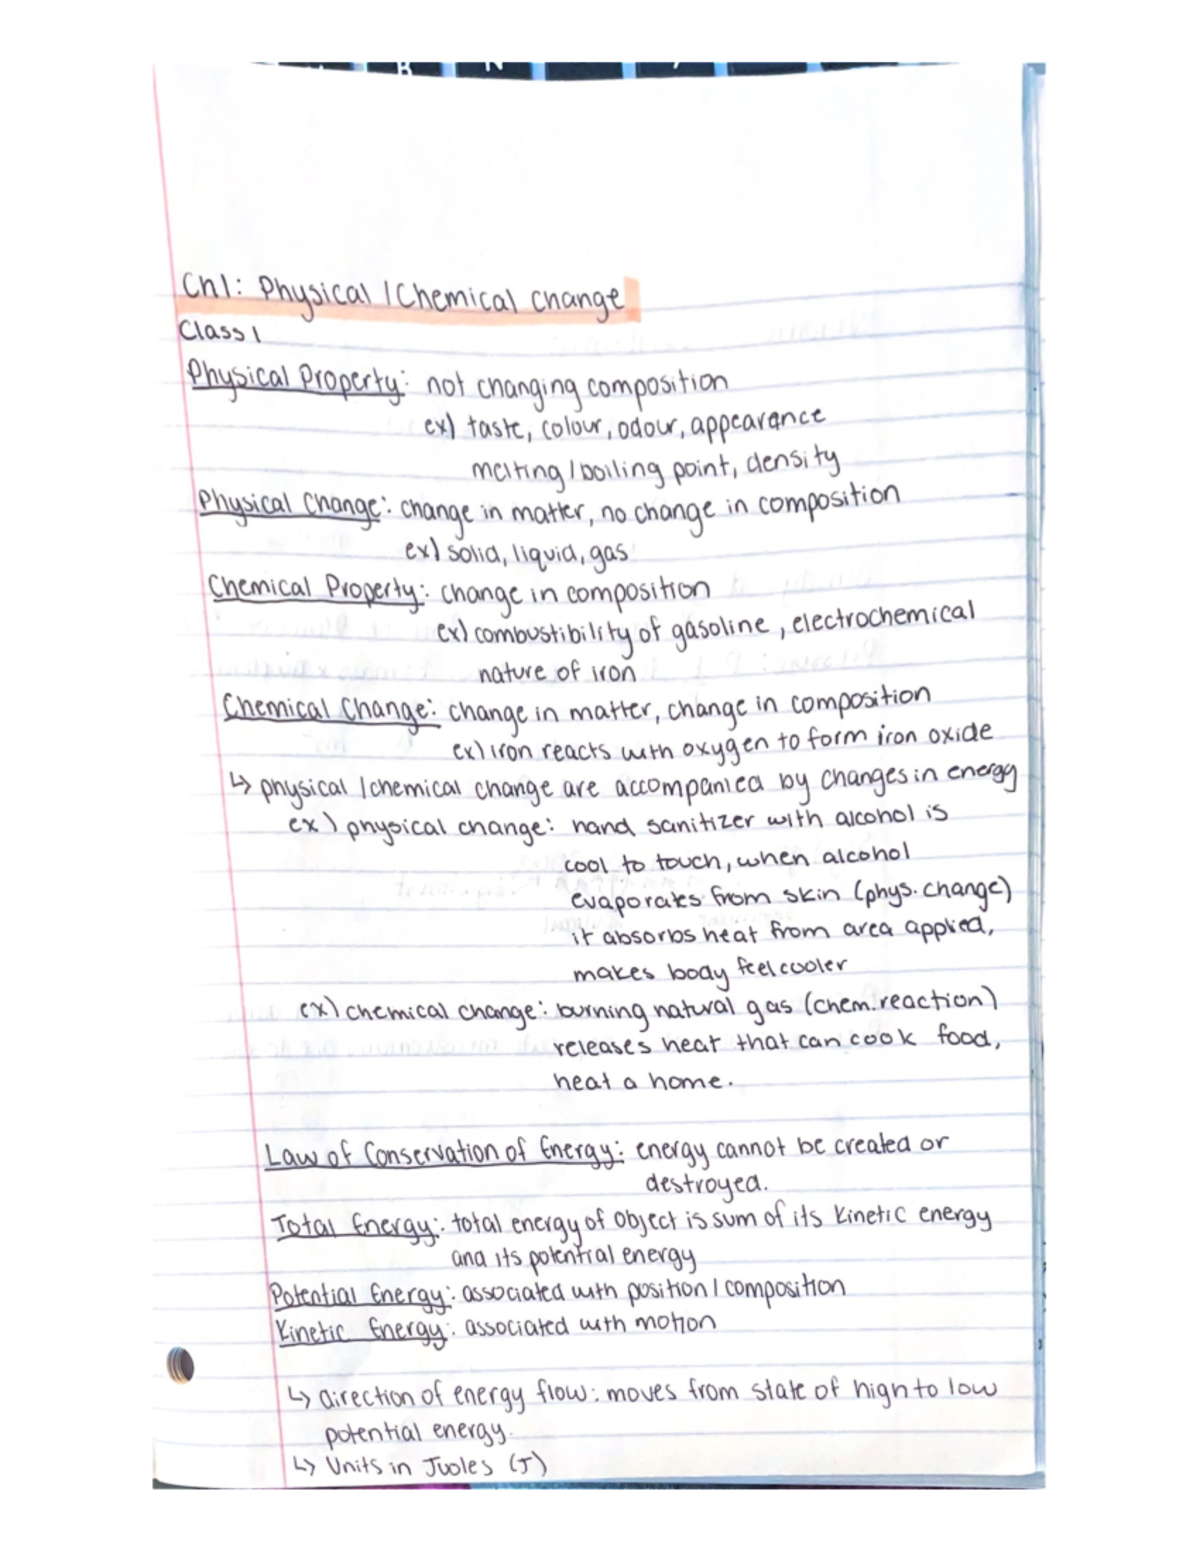 Ch1: Physical / Chemical change
Class 1
Physical Property: not changing composition
ex) taste, colour, odour, appearance
melting / boiling point, density
Physical Change: change in matter, no change in composition
ex) solid, liquid, gas
Chemical Property: change in composition
ex) combustibility of gasoline, electrochemical
nature of iron
Chemical Change: change in matter, change in composition
ex) iron reacts with oxygen to form iron oxide
↳ physical / chemical change are accompanied by changes in energy
ex) physical change: hand sanitizer with alcohol is
cool to touch, when alcohol
evaporates from skin (phys. change)
it absorbs heat from area applied,
makes body feel cooler
ex) chemical change: burning natural gas (chem. reaction)
releases heat that can cook food,
heat a home.
Law of Conservation of Energy: energy cannot be created or
destroyed.
Total Energy: total energy of object is sum of its kinetic energy
and its potential energy
Potential Energy: associated with position / composition
Kinetic Energy: associated with motion
↳ direction of energy flow: moves from state of high to low
potential energy.
↳ Units in Juoles (J)